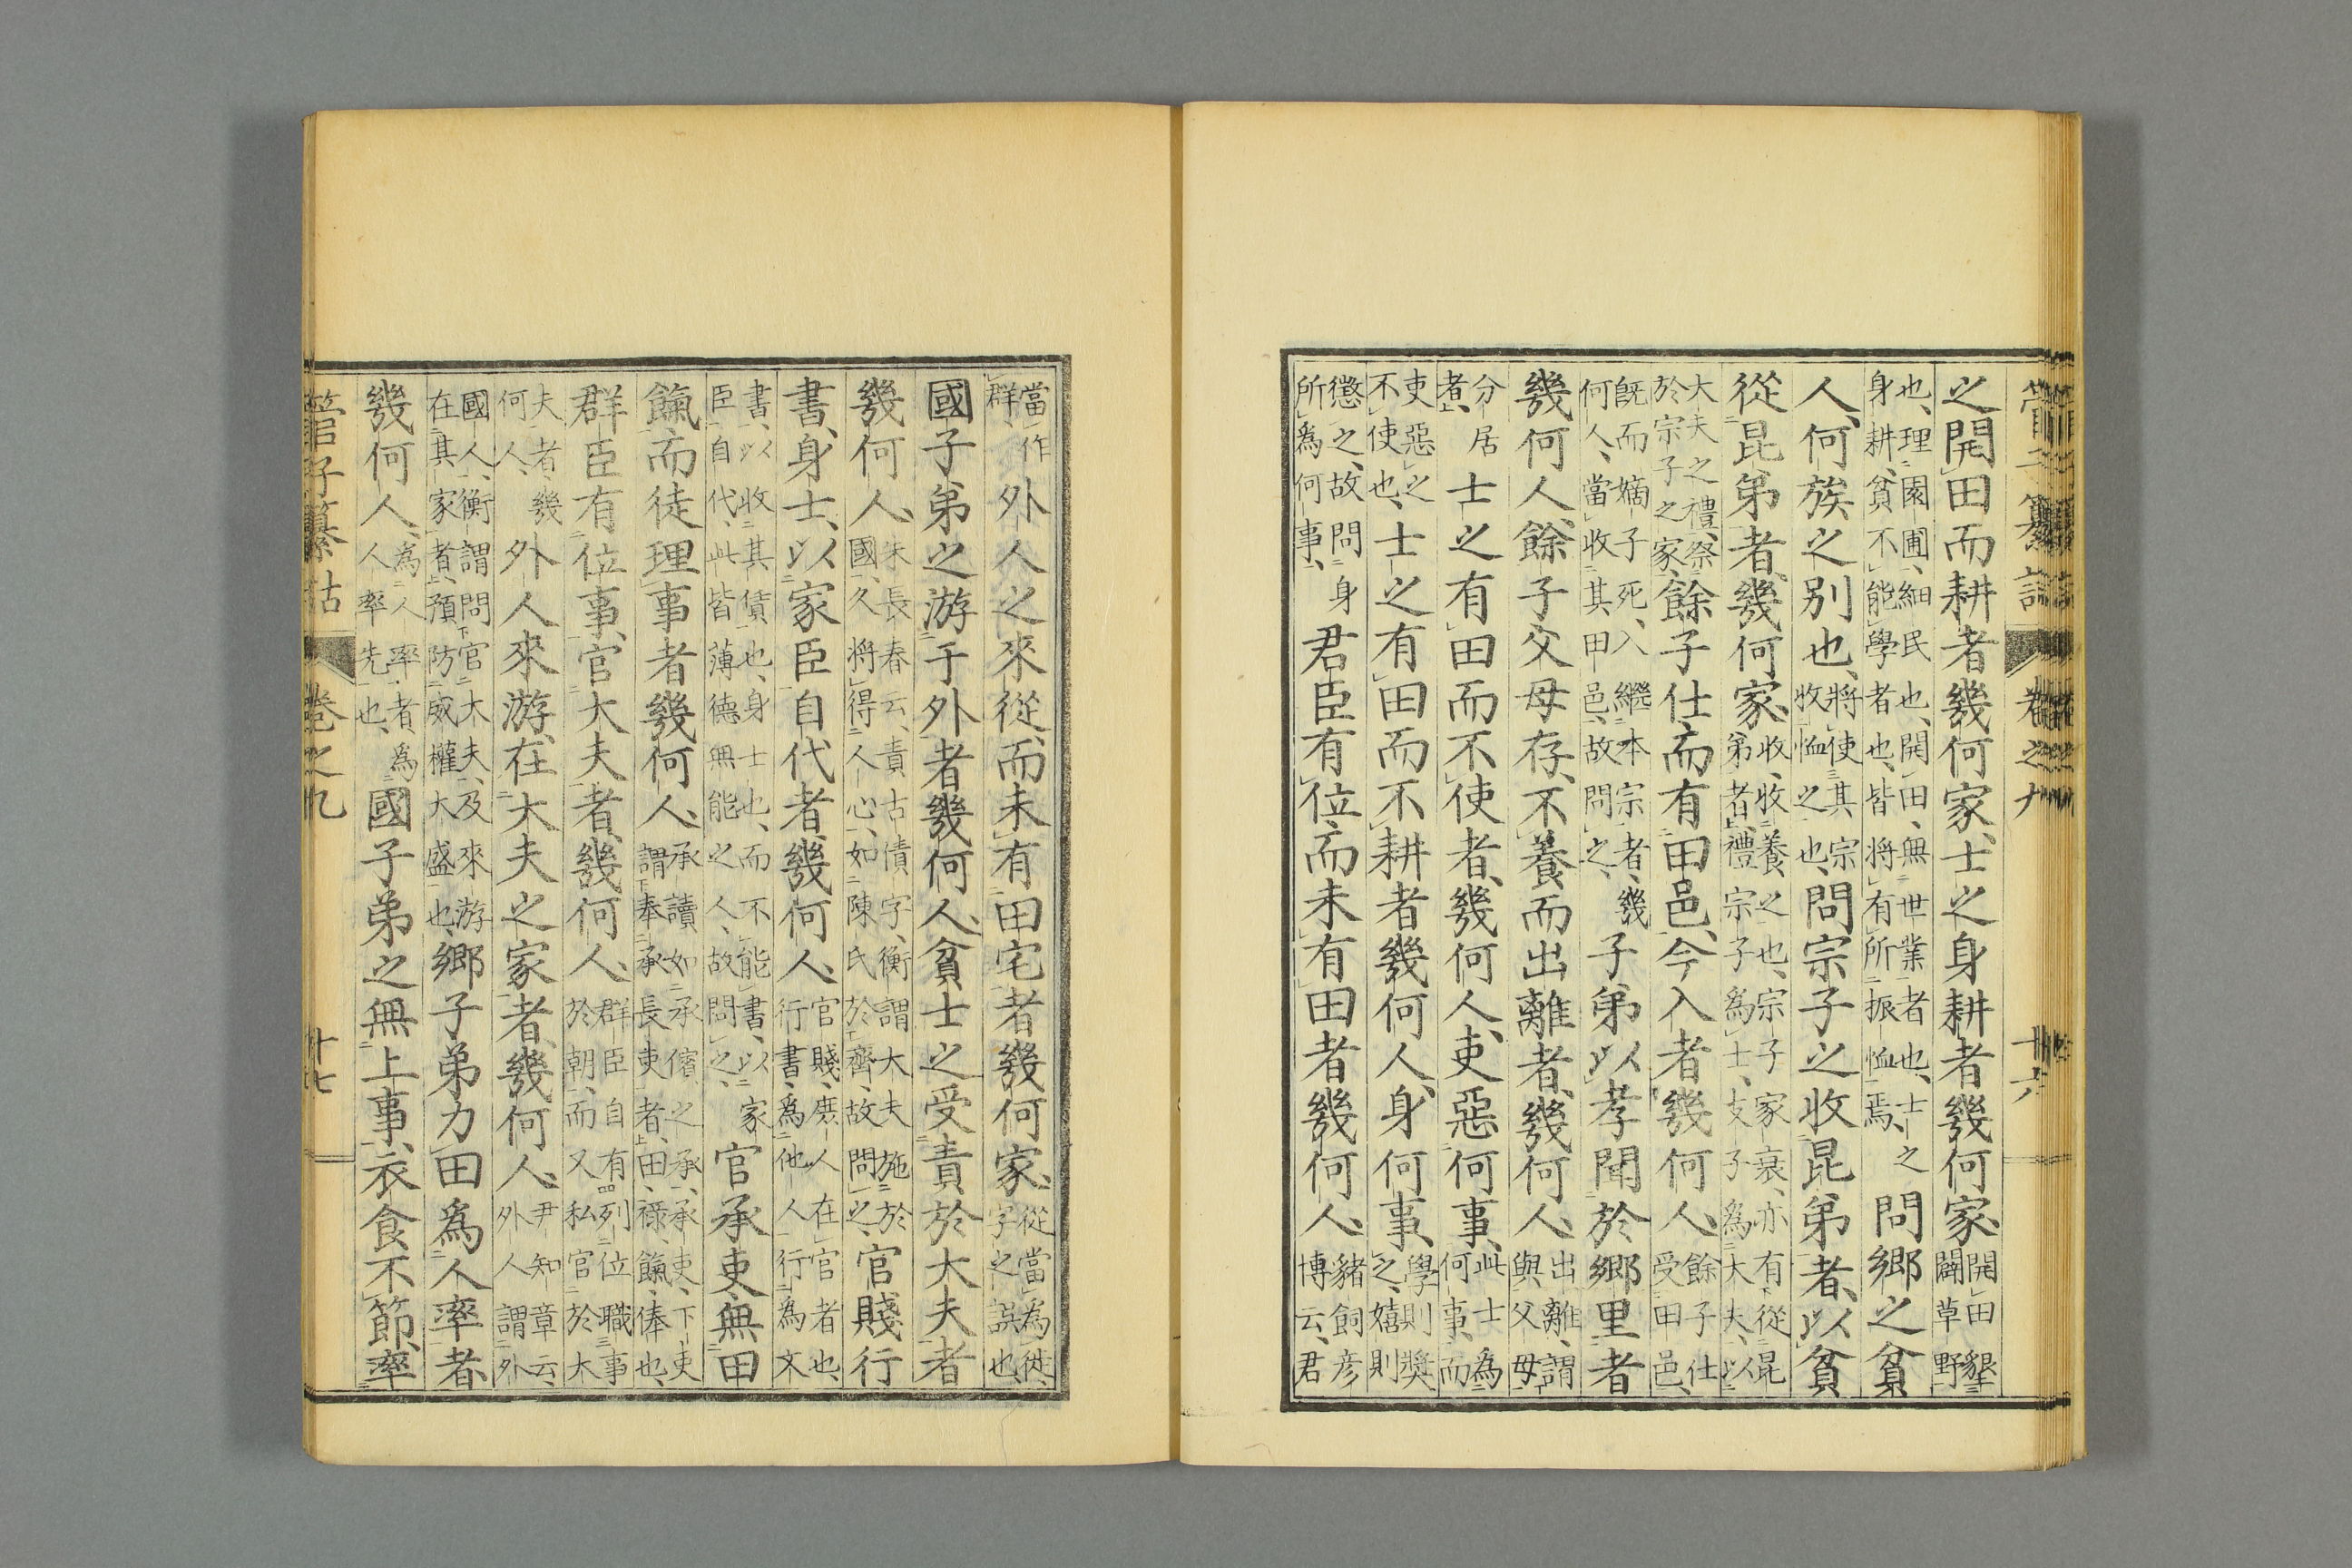 之開田而耕者幾何家、士之身耕者幾何家、開田墾闢草野
也、理園圃、細民也、開田、無世業者也、士之身耕、貧不能學者也、皆將有所振恤焉、問鄉之貧
人、何族之別也、將使其宗收恤之也、問宗子之收昆弟者、以貧
從昆弟者、幾何家、收、收養之也、宗子家衰、亦有從昆弟者、禮宗子爲士、支子爲大夫、以
大夫之禮、祭於宗子之家、餘子仕而有田邑、今入者幾何人、餘子仕受田邑、
既而嫡子死、入繼本宗者、幾何人、當收其甲邑、故問之、子弟以孝聞於鄉里者
幾何人、餘子父母存、不養而出離者、幾何人、出離、謂與父母
分居者、士之有田而不使者、幾何人、吏惡何事、此士爲何事、而
吏惡之不使也、士之有田而不耕者幾何人、身何事、學則奬之、嬉則
懲之、故問身所爲何事、君臣有位、而未有田者幾何人、豬飼彦博云、君
管子纂詁 卷之九 十六
當作群、外人之來從、而未有田宅者幾何家、從當爲徙、字之誤也、
國子弟之游于外者幾何人、貧士之受責於大夫者
幾何人、朱長春云、責古債字、衡謂大夫施於國人、將得人心、如陳氏於齊、故問之、官賤行
書、身士、以家臣自代者、幾何人、官賤、庶人在官者也、行書、爲他人行爲文
書、以收其債也、身士也、而不能書、以家臣自代、此皆薄德無能之人、故問之、官承吏、無田
餼而徒理事者幾何人、承讀如承儐之承、承吏、下吏謂奉承長吏者、田、祿、餼、俸也、
群臣有位事、官大夫者、幾何人、群臣自有列位職事於朝、而又私官於大
夫者、幾何人、外人來游、在大夫之家者、幾何人、尹知章云、外人謂外
國人、衡謂問官大夫、及來游在其家者、預防威權大盛也、鄉子弟力田爲人率者、
幾何人、爲人率者、爲人率先也、國子弟之無上事、衣食不節、率
管子纂詁 卷之九 十七